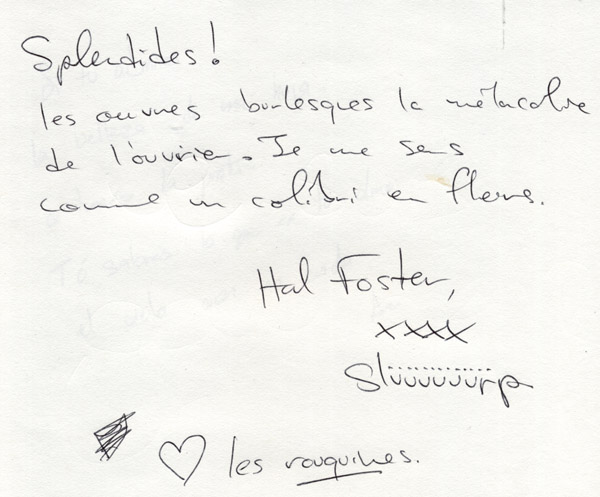 Splendides!
les œuvres burlesques la mélacolie
de l'ouvrier. Je me sens
comme un colibri en fleurs.
Hal Foster,
xxxx
Slüüüüüürp
♡ les rouquines.